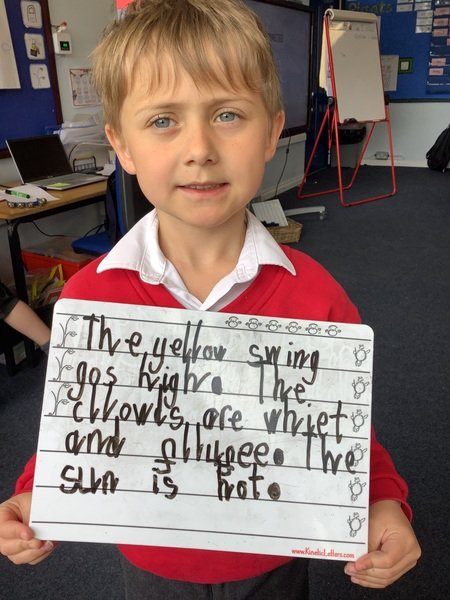 The yellow swing
gos high. The
clllowds are whiet
and flluffee. The
sun is hot.
www.KineticLetters.com